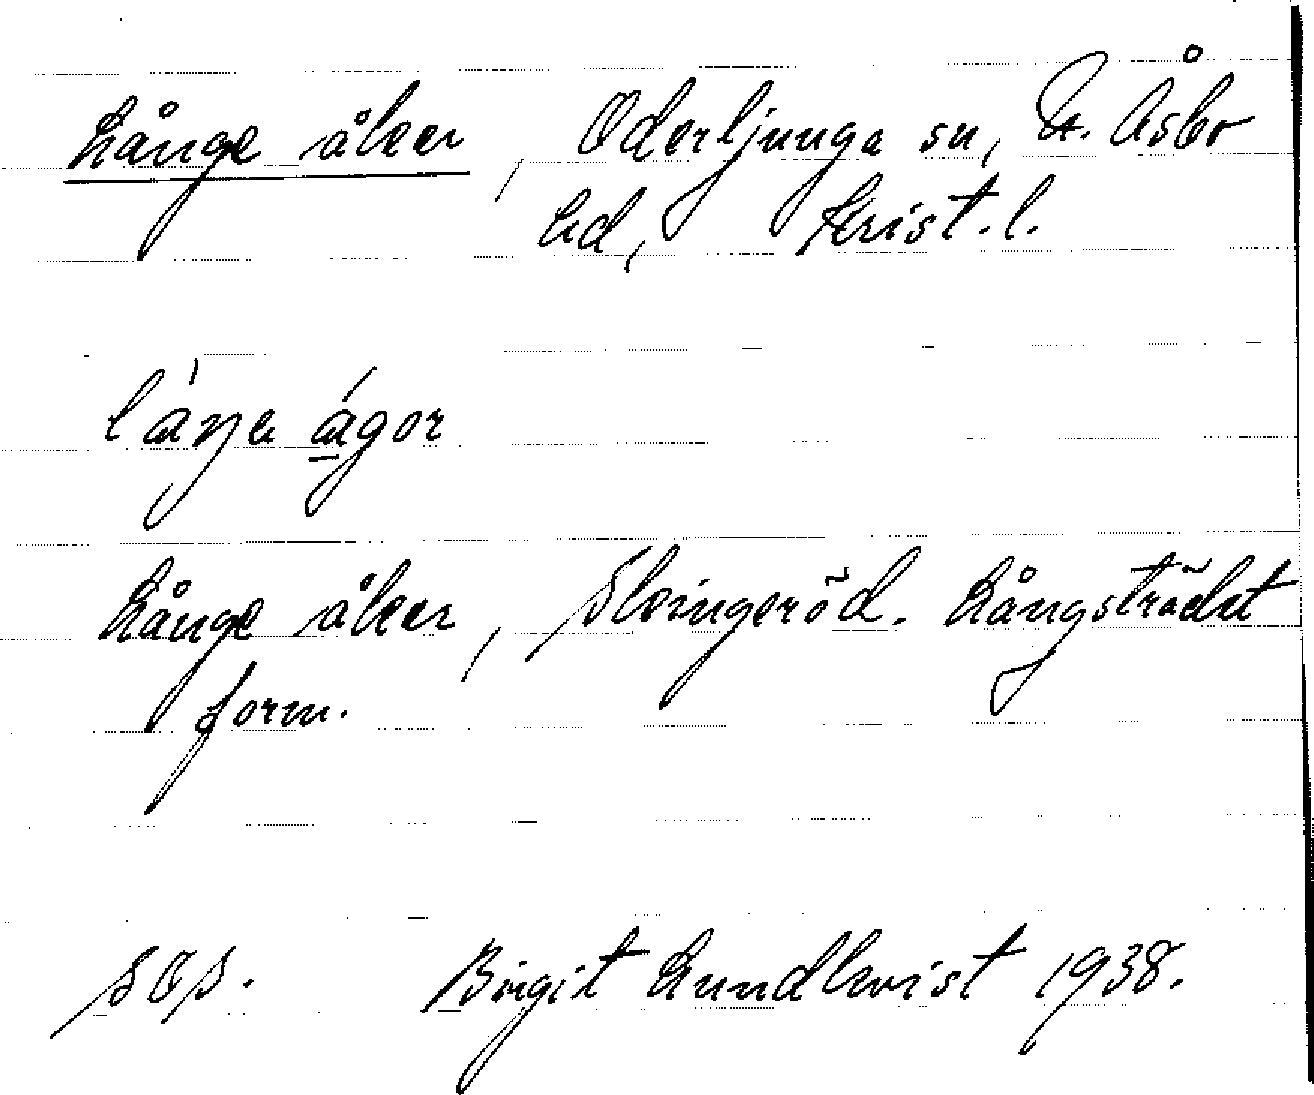 Långe åker, Oderljunga sn, N. Åsbo
hd, Krist. l.
láŋa ágor
Långe åker, Skingeröd. Långsträckt
form.
Birgit Lundkvist 1938.